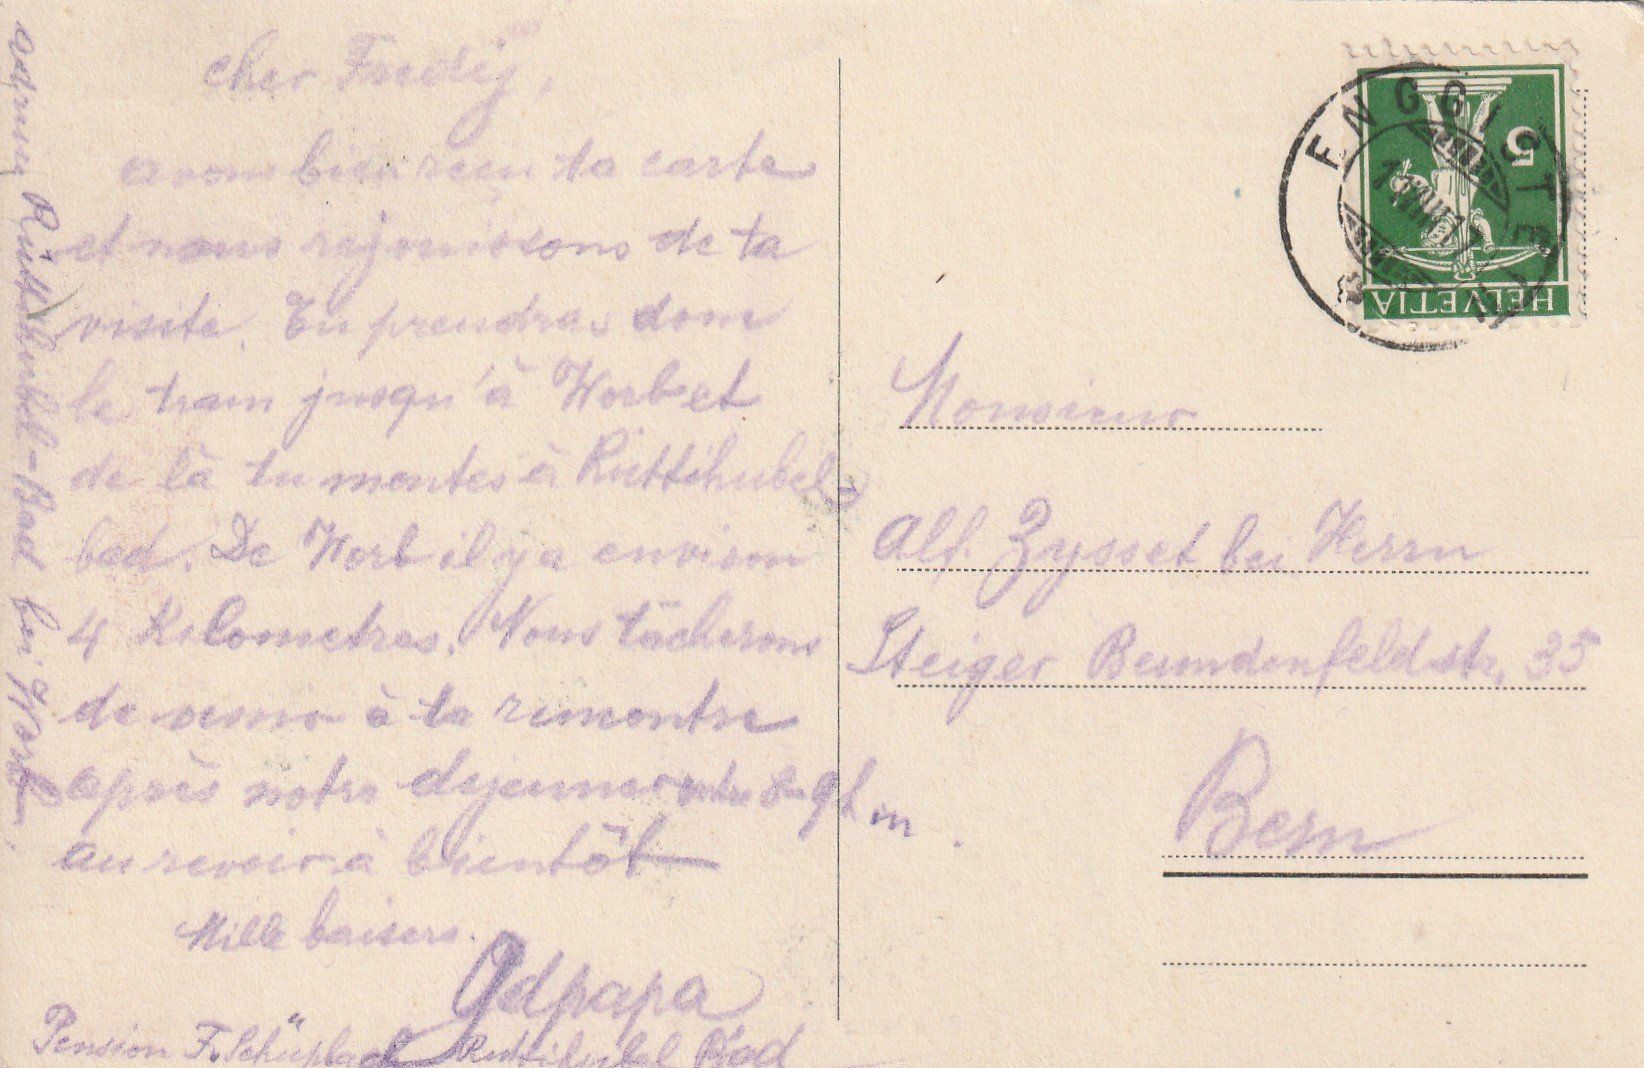 cher Fredy,
avons bien reçu ta carte
et nous rejouissons de ta
visite. Tu prendras donc
le tram jusqu'à Worb et
de là tu montes à Rüttihubel
bad. De Worb il y a environ
4 Kilometres. Nous tâcherons
de venir à ta rencontre
après notre dejeuner 9h
au revoir à bientôt
Mille baisers.
Gdpapa
Pension F. Schüpbach Rüttihubel Bad
adresse Rüttihubel-Bad bei Worb.
ENGGISTEIN
HELVETIA
5
Monsieur
Alf. Zysset bei Herrn
Steiger Beundenfeldstr. 35
Bern